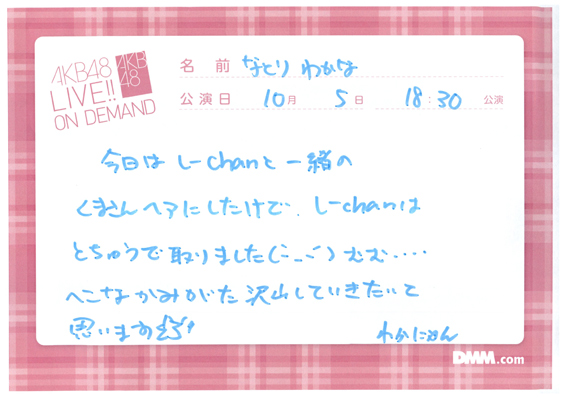 AKB48
LIVE!!
ON DEMAND
AKB
48
名 前 なとり わかな
公演日 10月 5日 18:30 公演
今日は しーchanと一緒の
くまさんヘアにしたけど、しーchanは
とちゅうで取りました(´-_-`) むむ‥‥
へこなかみがた沢山していきたいと
思います
わかにゃん
DMM.com